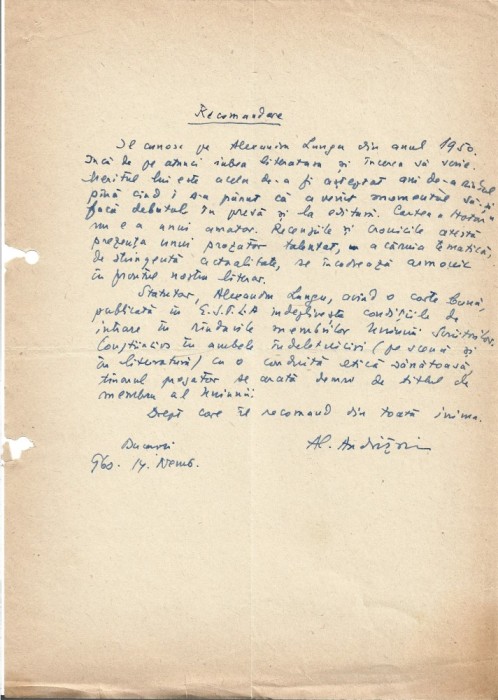 Recomandare
Îl cunosc pe Alexandru Lungu din anul 1950.
Încă de pe atunci iubea literatura și încerca să scrie.
Meritul lui este acela de-a fi așteptat ani de-a rîndul
pînă cînd i s-a părut că a venit momentul să-și
facă debutul în presă și la edituri. Cartea
nu e a unui amator. Recenziile și cronicile atestă
prezența unui prozator talentat, a cărui tematică,
de stringentă actualitate, se încadrează armonic
în frontul nostru literar.
Statutar, Alexandru Lungu, avînd o carte bună,
publicată în E.S.P.L.A îndeplinește condițiile de
intrare în rîndurile membrilor Uniunii Scriitorilor.
Conștiincios în ambele îndeletniciri (pe scenă și
în literatură) cu o conduită etică sănătoasă,
tînărul prozator se arată demn de titlul de
membru al Uniunii.
Drept care îl recomand din toată inima.
București Al. Andrițoiu
960. 14. Nemb.